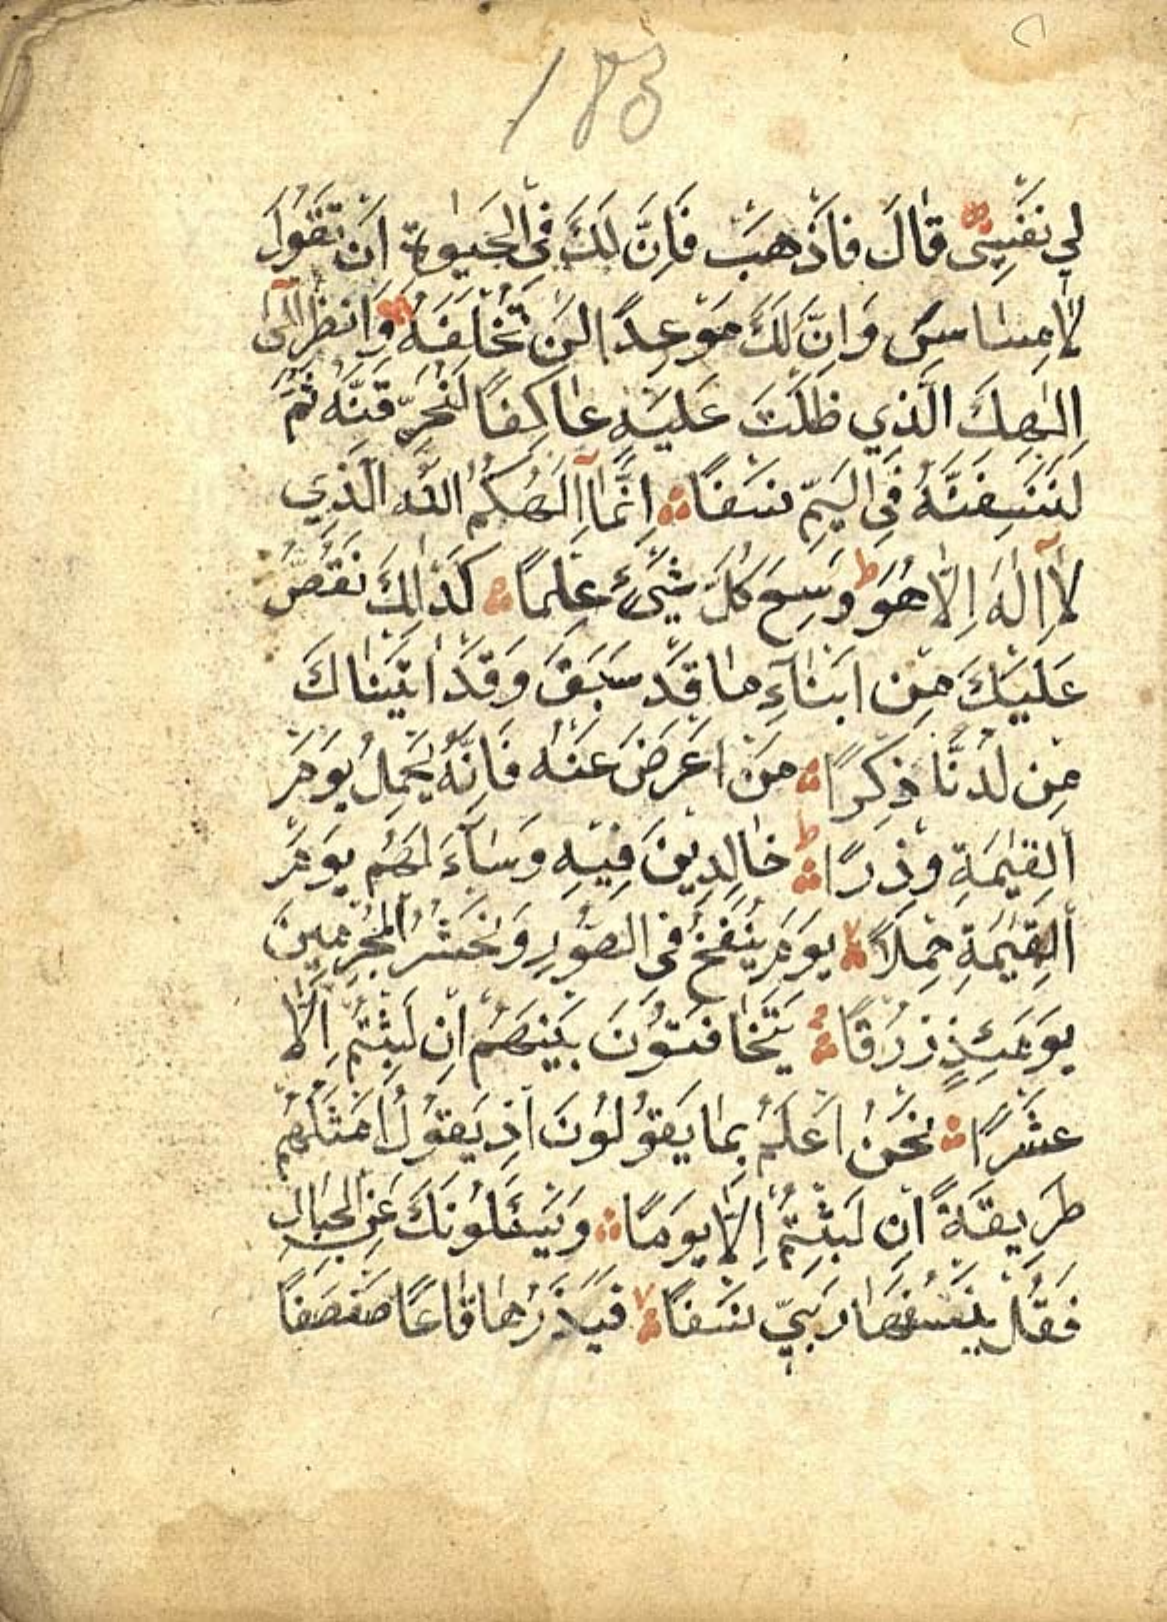 183
لِي نَفْسِي قَالَ فَاذْهَبْ فَاِنَّ لَكَ فِي الْحَيٰوةِ اَنْ تَقُولَ
لَا مِسَاسَ وَاِنَّ لَكَ مَوْعِدًا لَنْ تُخْلَفَهُ وَانْظُرْ اِلٰٓى
اِلٰهِكَ الَّذِي ظَلْتَ عَلَيْهِ عَاكِفًا لَنُحَرِّقَنَّهُ ثُمَّ
لَنَنْسِفَنَّهُ فِي الْيَمِّ نَسْفًا اِنَّمَآ اِلٰهُكُمُ اللّٰهُ الَّذِي
لَآ اِلٰهَ اِلَّا هُوَ ط وَسِعَ كُلَّ شَيْءٍ عِلْمًا كَذَالِكَ نَقُصُّ
عَلَيْكَ مِنْ اَنْبَآءِ مَا قَدْ سَبَقَ وَقَدْ اٰتَيْنَاكَ
مِنْ لَدُنَّا ذِكْرًا مَنْ اَعْرَضَ عَنْهُ فَاِنَّهُ يَحْمِلُ يَوْمَ
الْقِيٰمَةِ وِذْرًا ط خَالِدِينَ فِيهِ وَسَآءَ لَهُمْ يَوْمَ
الْقِيٰمَةِ حِمْلًا لا يَوْمَ يُنْفَخُ فِي الصُّورِ وَنَحْشُرُ الْمُجْرِمِينَ
يَوْمَئِذٍ زُرْقًا يَتَخَافَتُونَ بَيْنَهُمْ اِنْ لَبِثْتُمْ اِلَّا
عَشْرًا نَحْنُ اَعْلَمُ بِمَا يَقُولُونَ اِذْ يَقُولُ اَمْثَلُهُمْ
طَرِيقَةً اِنْ لَبِثْتُمْ اِلَّا يَوْمًا وَيَسْئَلُونَكَ عَنِ الْجِبَالِ
فَقُلْ يَنْسِفُهَا رَبِّي نَسْفًا لا فَيَذَرُهَا قَاعًا صَفْصَفًا